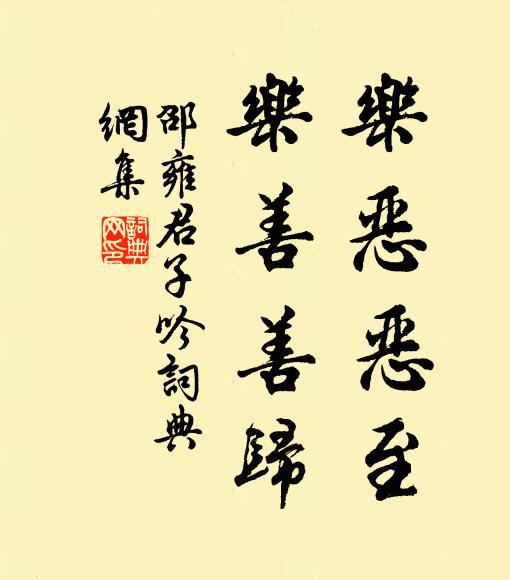 樂惡惡至
樂善善歸
邵雍君子吟詞典
網集
詞典
网印